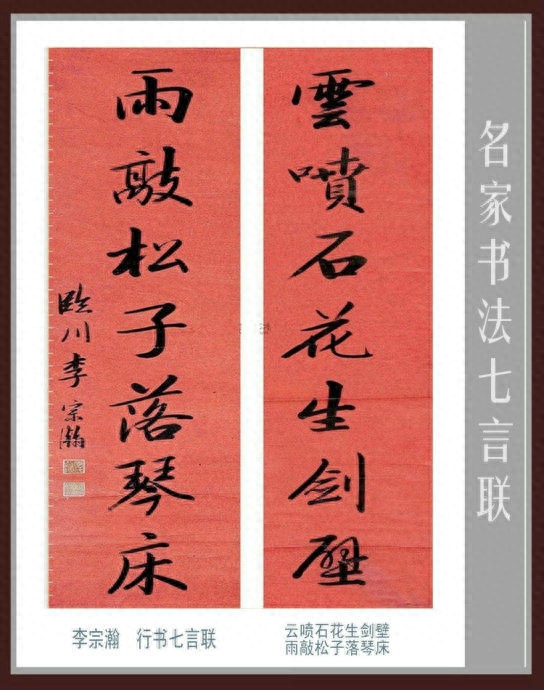 名家书法七言联
雲噴石花生劍壁
雨敲松子落琴床
臨川李宗瀚
李宗瀚 行书七言联
云喷石花生剑壁
雨敲松子落琴床